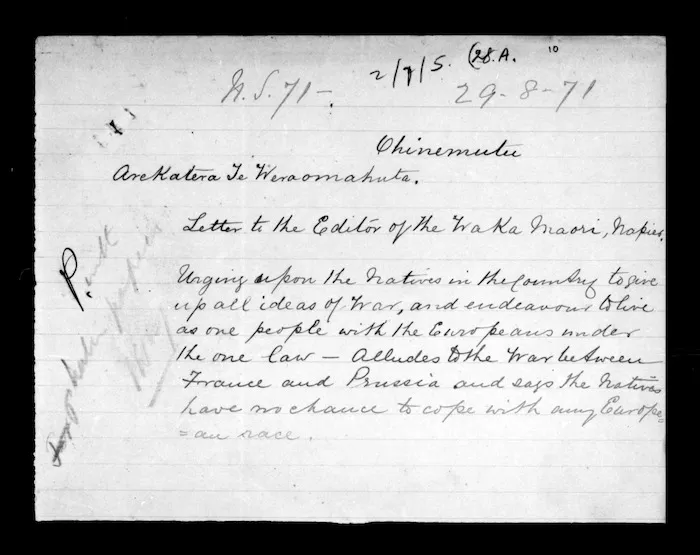 2/7/5. (28.A. 10
N.S. 71-. 29-8-71
Ohinemutu
Arekatera Te Weraomahuta.
Letter to the Editor of the Waka Maori, Napier.
Urging upon the Natives in the country to give
up all ideas of War, and endeavour to live
as one people with the Europeans under
the one law — Alludes to the War between
France and Prussia and says the Natives
have no chance to cope with any Europe=
=an race.
P.
papers